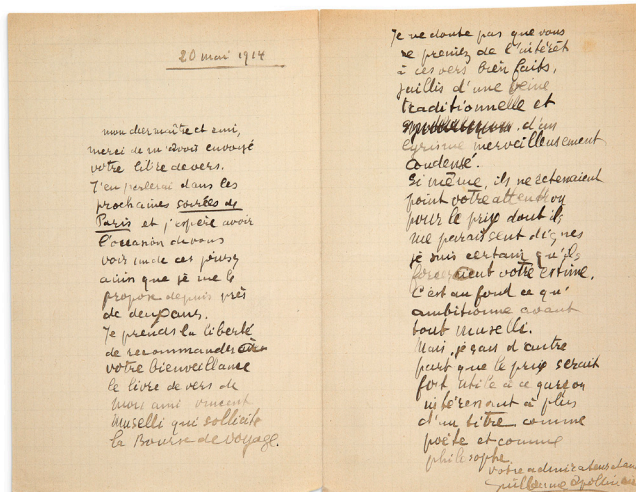 20 mai 1914
mon cher maître et ami,
merci de m'avoir envoyé
votre livre de vers.
J'en parlerai dans les
prochaines soirées de
Paris et j'espère avoir
l'occasion de vous
voir un de ces jeudis
ainsi que je me le
propose depuis près
de deux ans.
Je prends la liberté
de recommander à
votre bienveillance
le livre de vers de
mon ami vincent
Muselli qui sollicite
la Bourse de Voyage.
Je ne doute pas que vous
ne preniez de l'intérêt
à ces vers bien faits,
jaillis d'une veine
traditionnelle et
d'un
lyrisme merveilleusement
condensé.
Si même, ils ne retenaient
point votre attention
pour le prix dont ils
me paraissent dignes
je suis certain qu'ils
forceraient votre estime.
C'est au fond ce qu'
ambitionne avant
tout Muselli.
Mais, je sais d'autre
part que le prix serait
fort utile à ce garçon
intéressant à plus
d'un titre comme
poète et comme
philosophe.
votre admirateur et ami
Guillaume Apollinaire